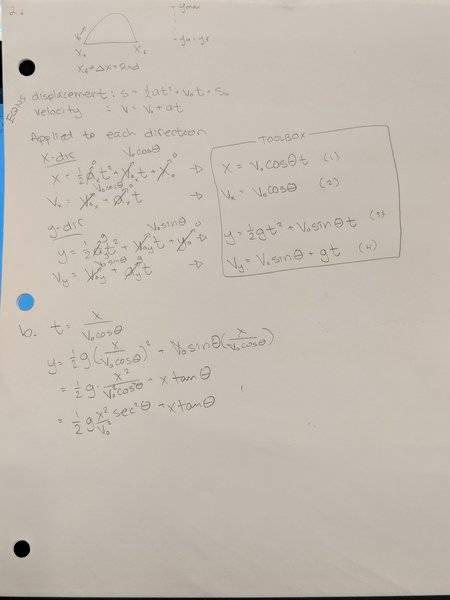 2.
- ymax
- y0 = yf
X0 Xf
EQNS displacement: s = ½at² + v0t + s0
velocity : v = v0 + at
Applied to each direction
x-dir
V0cosθ
x = ½axt² + V0xt + x0 → 
Vx = V0x + axt →
y-dir
g V0sinθ 0
y = ½ayt² + V0yt + y0 →
V0sinθ g
Vy = V0y + ayt →
TOOLBOX
x = V0cosθt (1)
Vx = V0cosθ (2)
y = ½gt² + V0sinθt (3)
Vy = V0sinθ + gt (4)
b. t = x/V0cosθ
y = ½g(x/V0cosθ)² + V0sinθ(x/V0cosθ)
= ½g · x²/V0²cos²θ + x tanθ
= ½g x²/V0² sec²θ + x tanθ